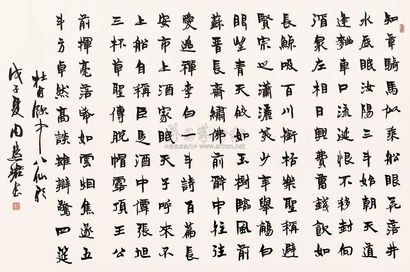 知章騎馬似乘船眼花落井
水底眠汝陽三斗始朝天道
逢麴車口流涎恨不移封向
酒泉左相日興費萬錢飲如
長鯨吸百川銜杯樂聖稱避
賢宗之瀟灑美少年舉觴白
眼望青天皎如玉樹臨風前
蘇晉長齋繡佛前醉中往往
愛逃禪李白一斗詩百篇長
安市上酒家眠天子呼來不
上船自稱臣是酒中僊張旭
三杯草聖傳脫帽露頂王公
前揮毫落紙如雲煙焦遂五
斗方卓然高談雄辯驚四筵
杜甫飲中八仙歌
戊子夏周書